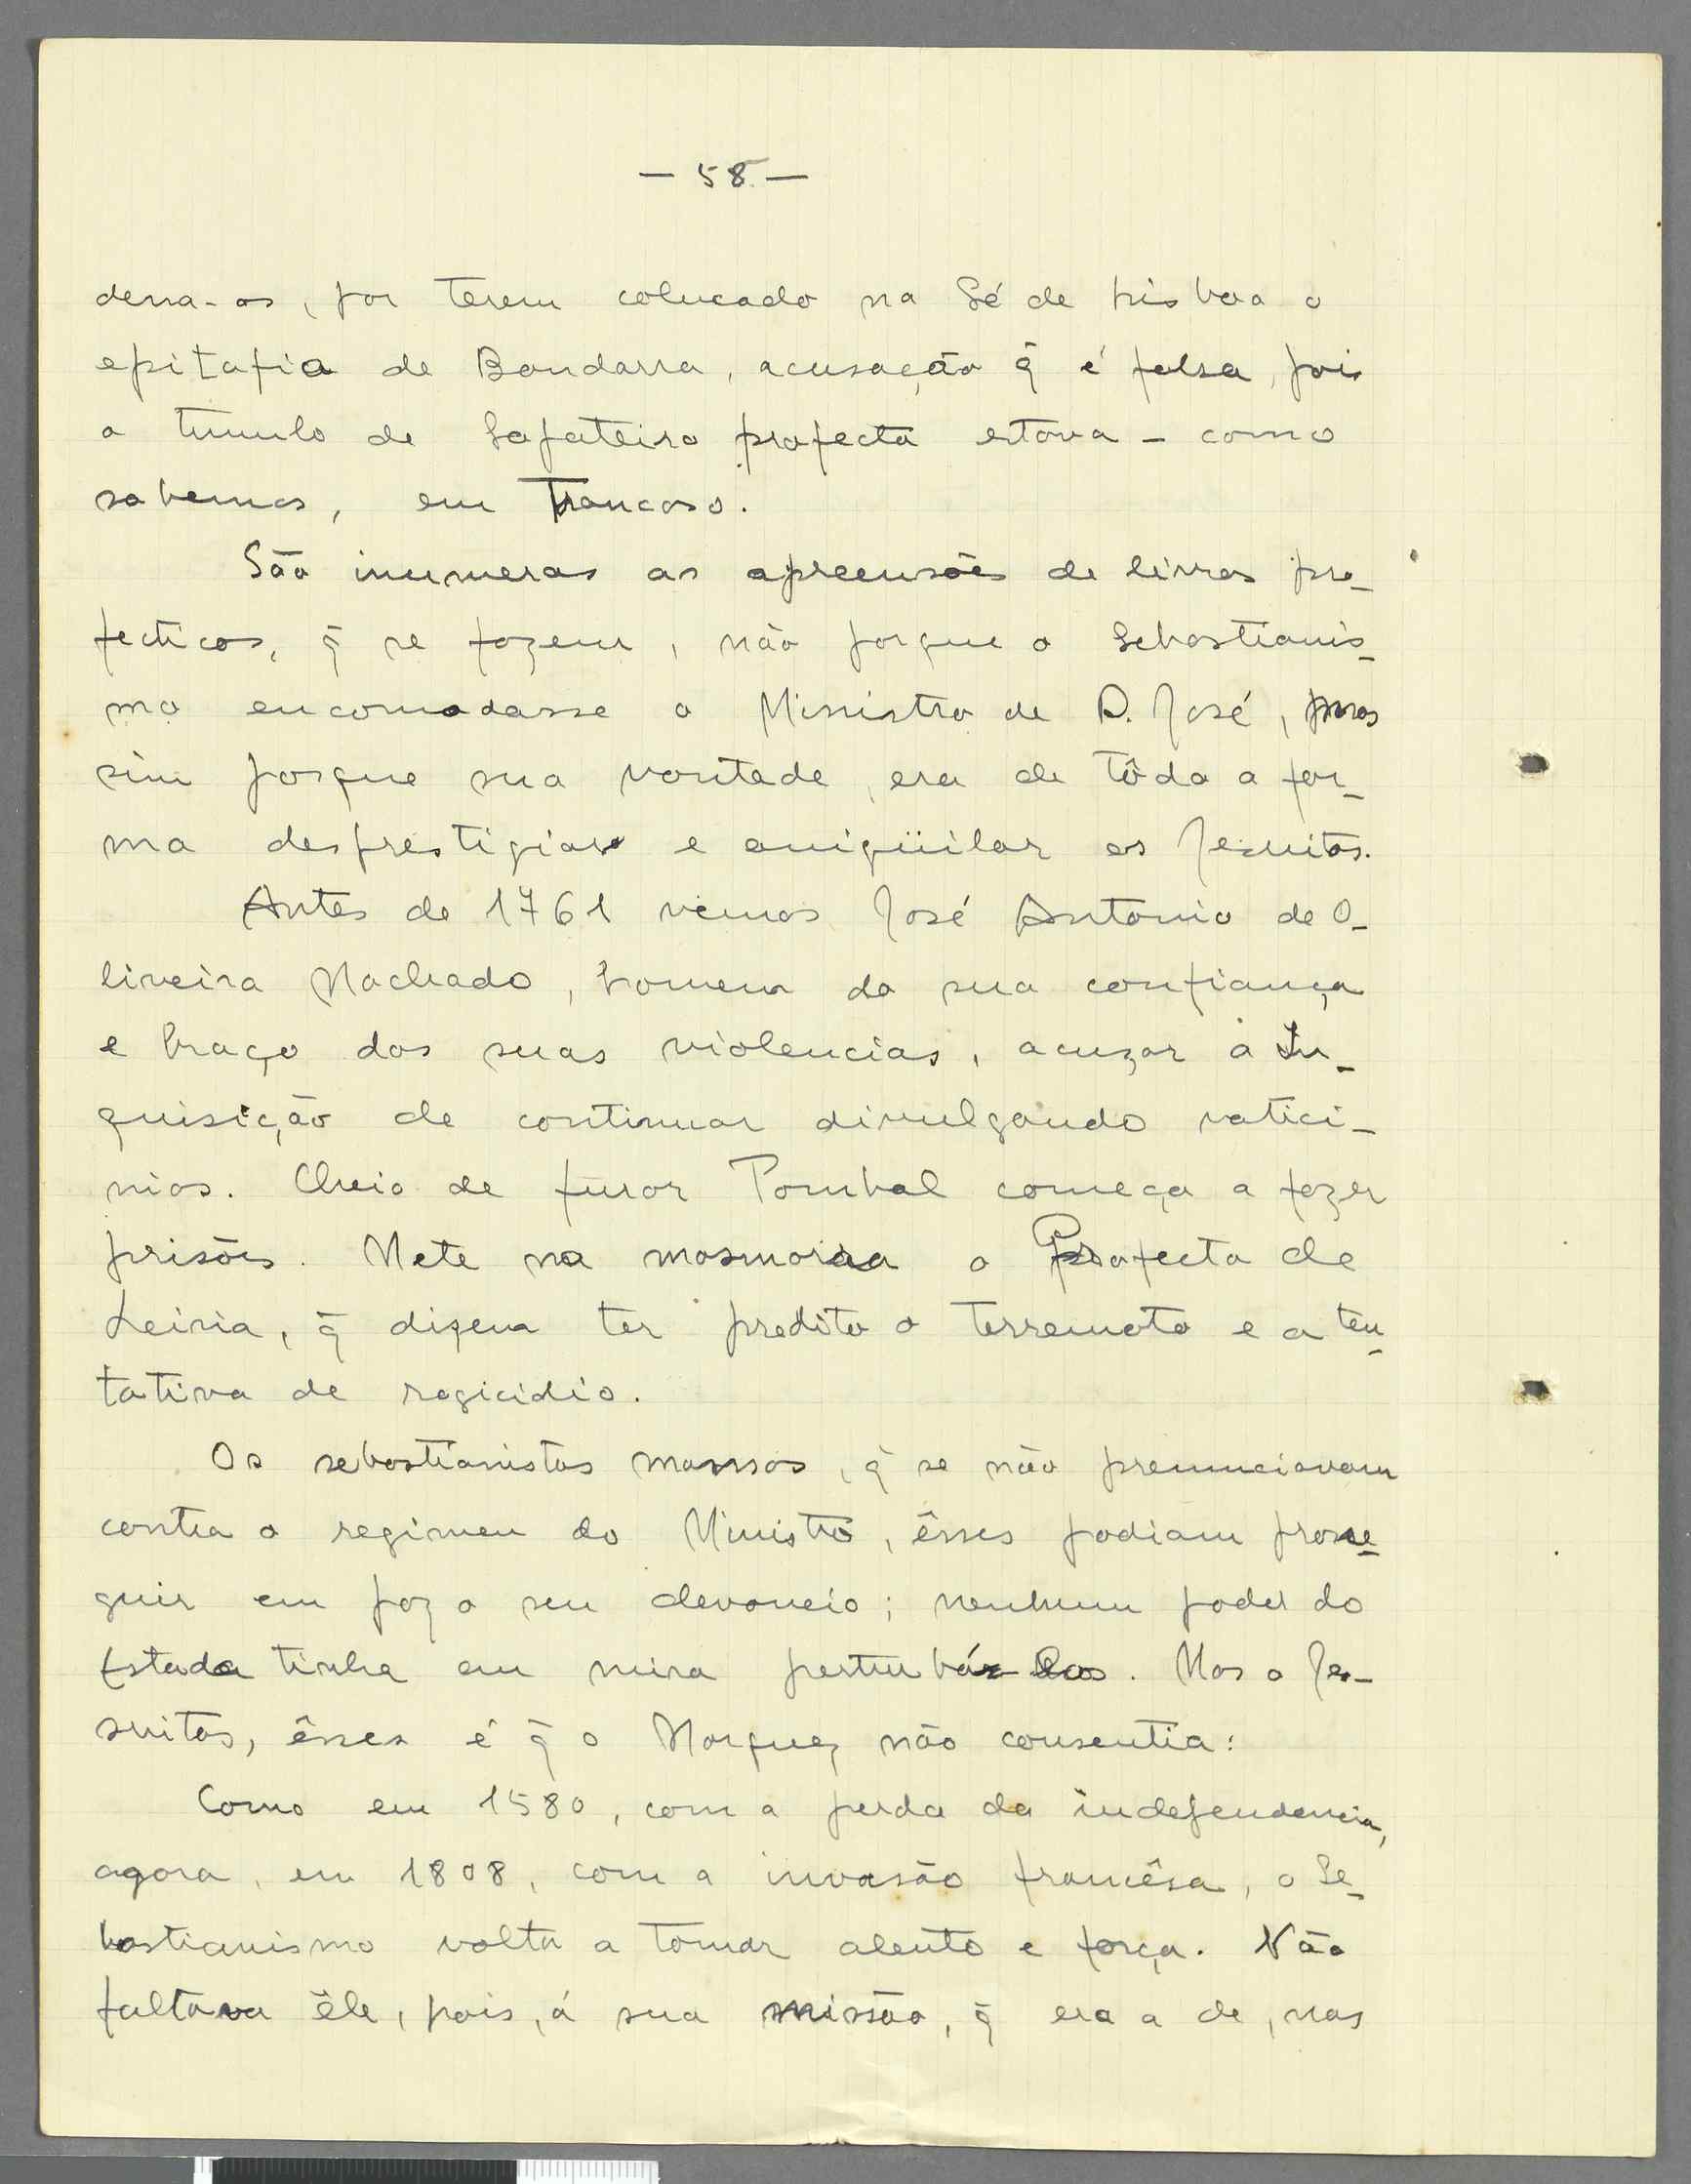 — 58 —
dena-os, por terem colucado na Sé de Lisboa o
epitafio de Bandarra, acusação q̃ é falsa, pois
o tumulo de Sapateiro profecta estava – como
sabemos, em Trancoso.
São inumeras as apreensões de livros pro-
fecticos, q̃ se fazem, não porque o Sebastianis-
mo encomodasse o Ministro de D. José, mas
sim porque sua vontade, era de tôda a for-
ma desprestigiar e aniqüilar os Jesuitas.
Antes de 1761 vemos José Antonio de O-
liveira Machado, homem da sua confiança
e braço das suas violencias, acuzar a In-
quisição de continuar divulgando vatici-
nios. Cheio de furor Pombal começa a fazer
prisões. Mete na masmorra o Profecta de
Leiria, q̃ dizem ter predito o terremoto e a ten-
tativa de regicidio.
Os sebastianistas mansos, q̃ se não prenunciavam
contra o regimen do Ministro, êsses podiam prose-
guir em paz o seu devaneio; nenhum poder do
Estado tinha em mira perturbá-los. Mas o Je-
suitas, êsses é q̃ o Marquez não consentia:
Como em 1580, com a perda da independencia,
agora, em 1808, com a invasão francêsa, o Se-
bastianismo volta a tomar alento e força. Não
faltava êle, pois, á sua missão, q̃ era a de, nas